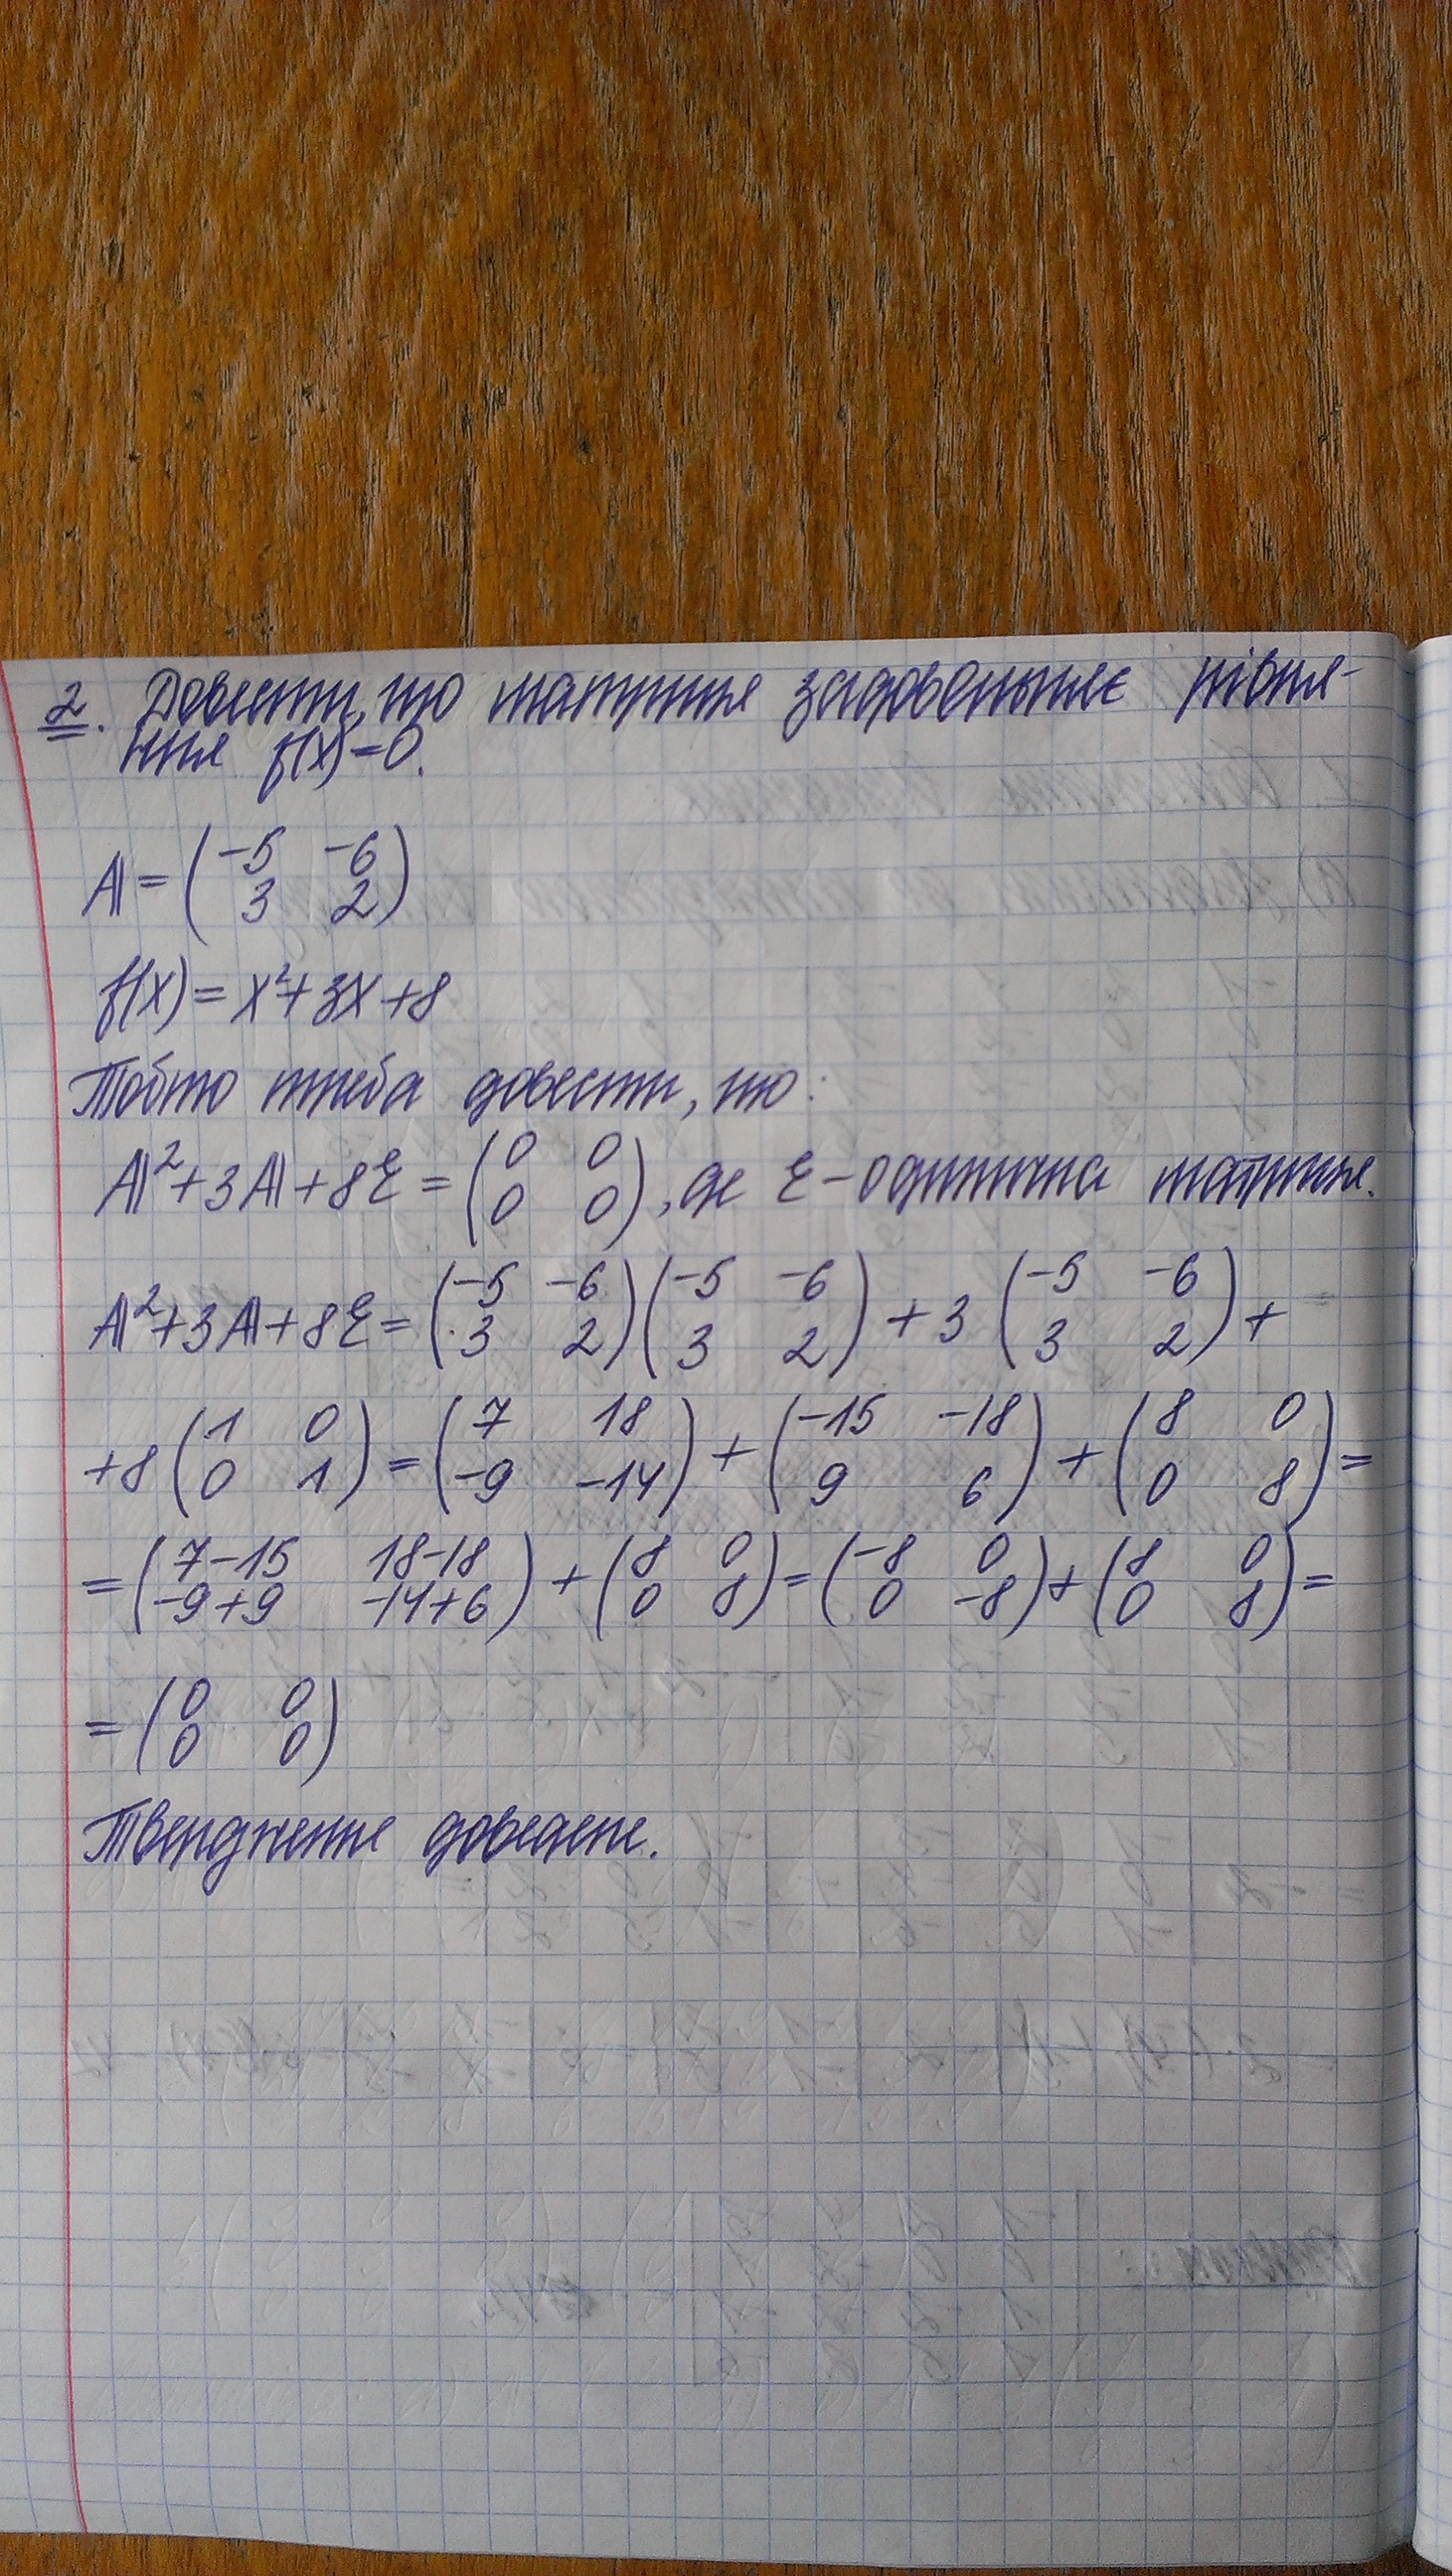 2. Довести, що матриця задовольняє рівня-
ння f(x)=0.
A = (-5 -6
3 2)
f(x) = x²+3x+8
Тобто треба довести, що:
A²+3A+8E = (0 0
0 0), де E – одинична матриця.
A²+3A+8E = (-5 -6
3 2)(-5 -6
3 2) + 3(-5 -6
3 2) +
+8(1 0
0 1) = (7 18
-9 -14) + (-15 -18
9 6) + (8 0
0 8) =
= (7-15 18-18
-9+9 -14+6) + (8 0
0 8) = (-8 0
0 -8) + (8 0
0 8) =
= (0 0
0 0)
Твердження доведене.